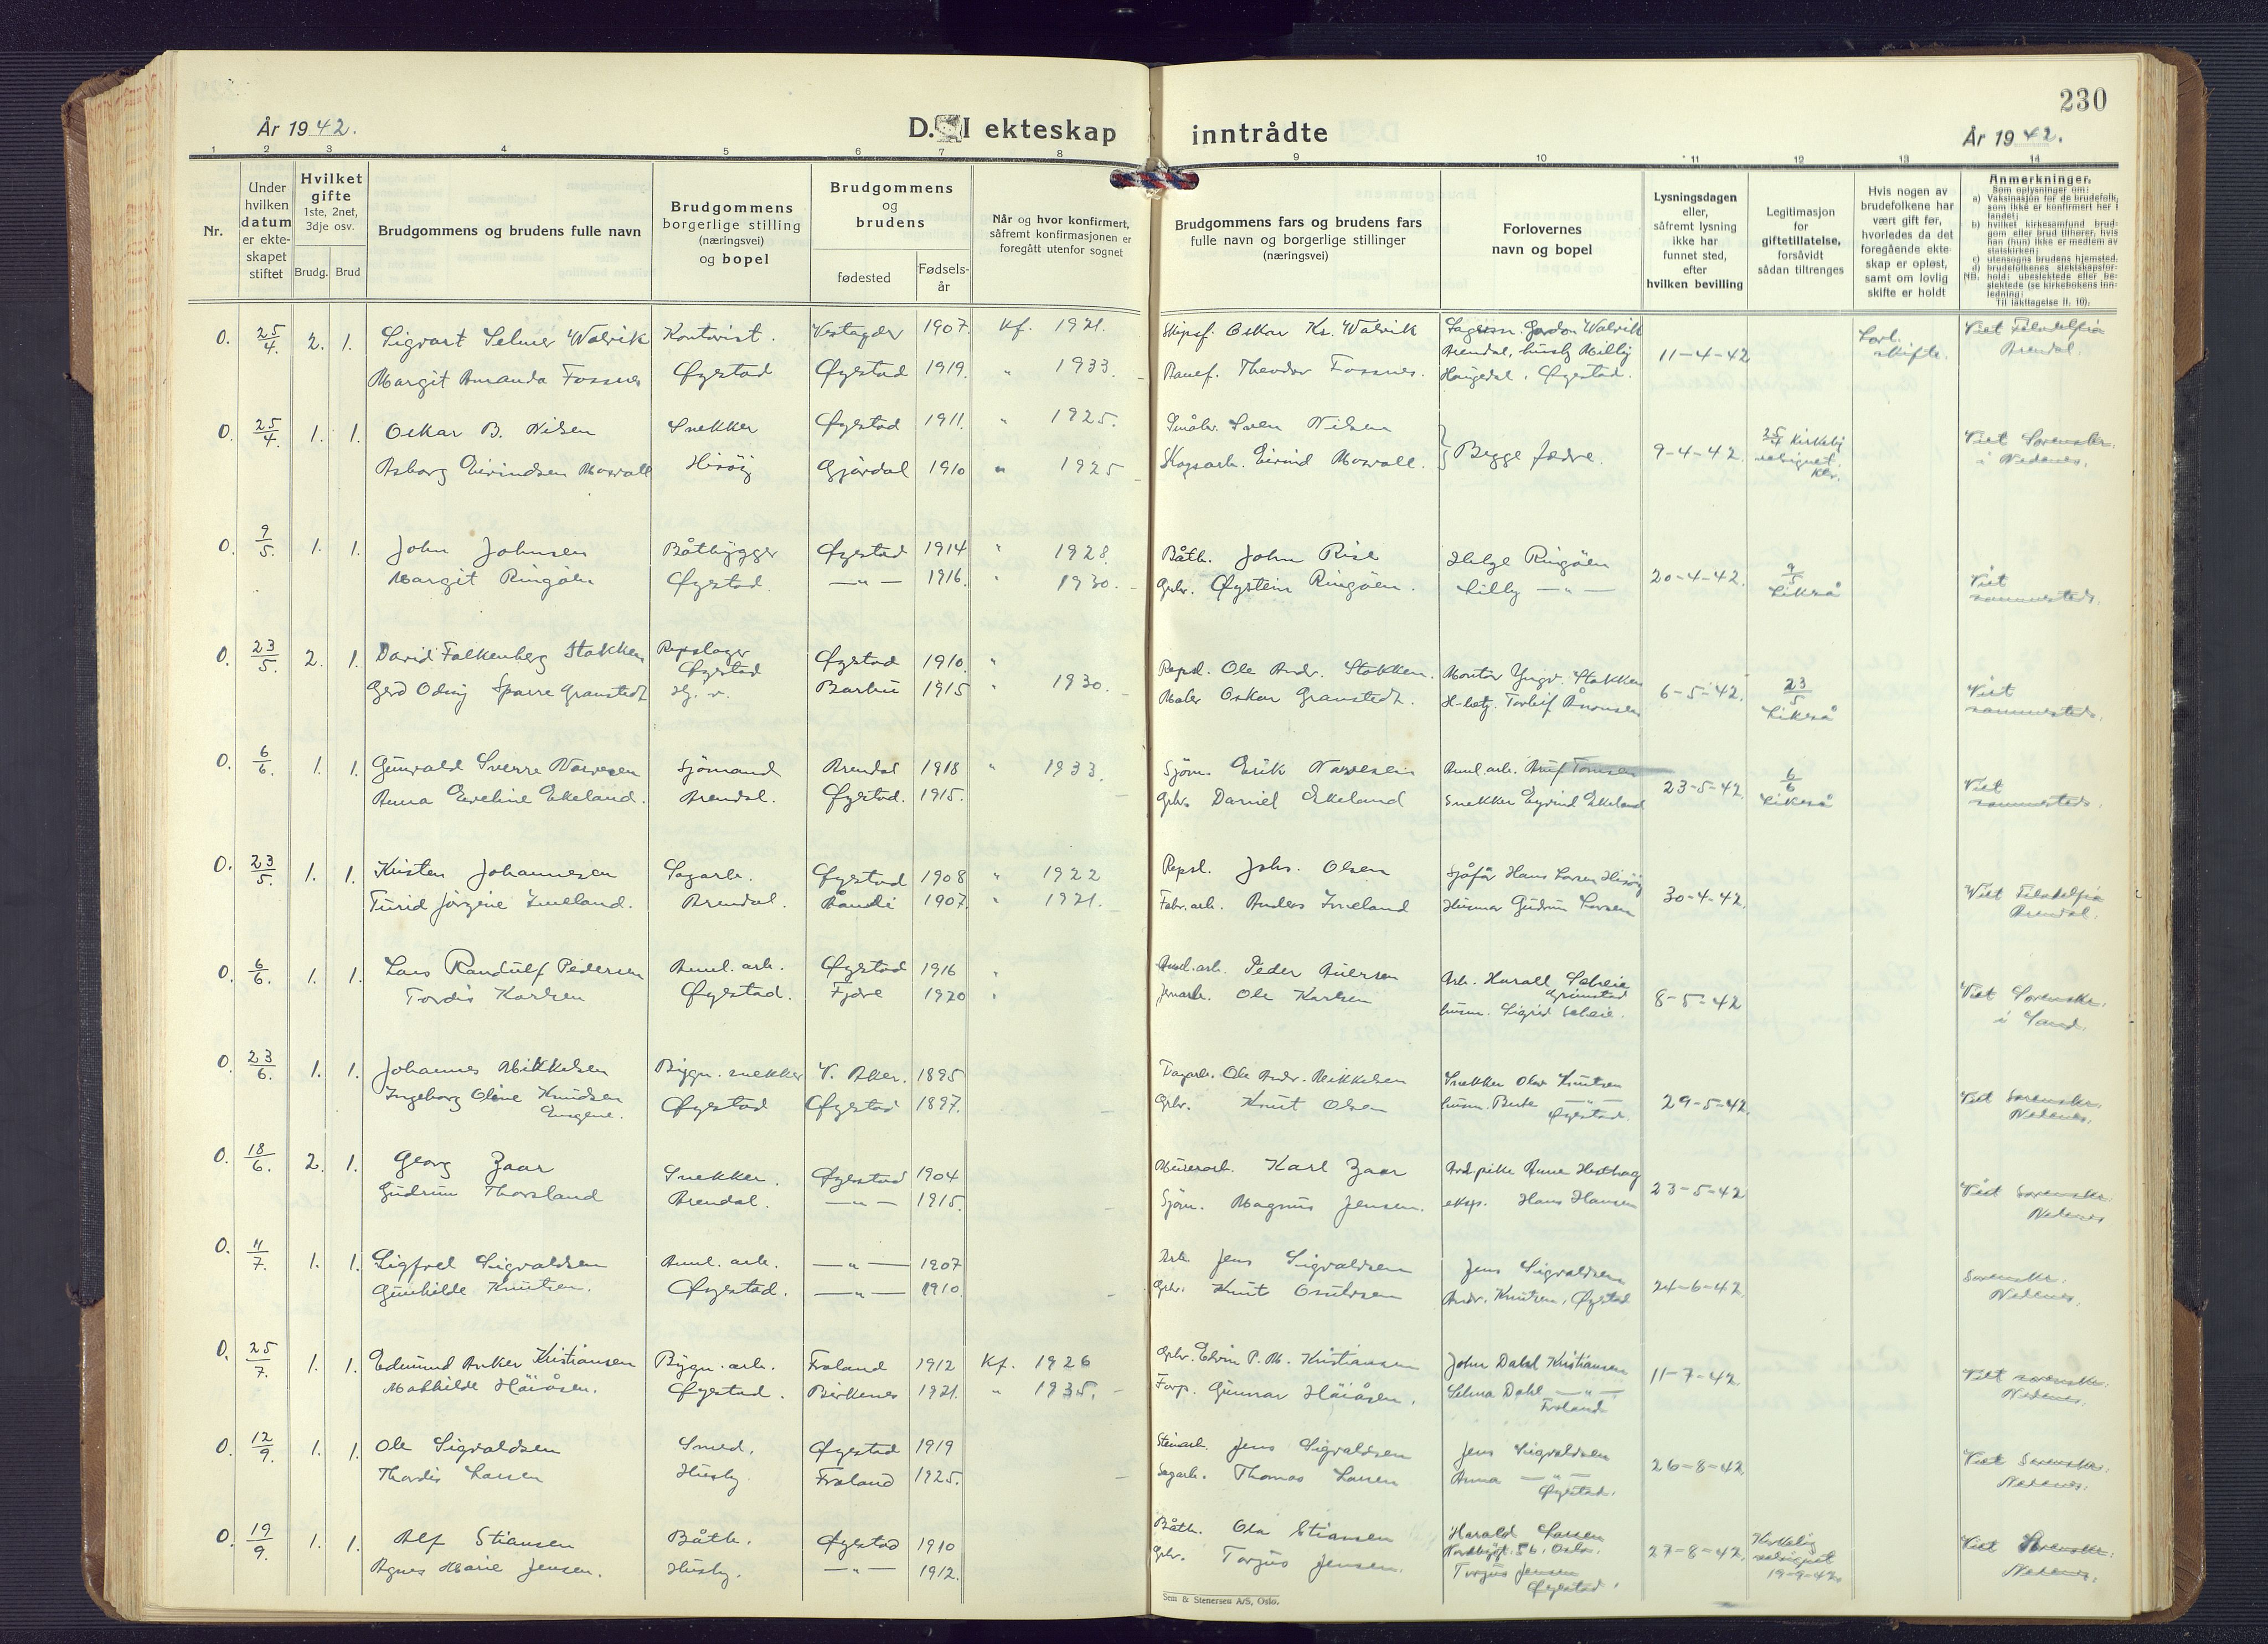 230
År 1942.
D. I ekteskap inntrådte
År 1942.
1 2 3 4 5 6 7 8 9 10 11 12 13 14
Nr.
Under hvilken datum er ekteskapet stiftet
Hvilket gifte 1ste, 2net, 3dje osv.
Brudg. Brud
Brudgommens og brudens fulle navn
Brudgommens borgerlige stilling (næringsvei) og bopel
Brudgommens og brudens
fødested
Fødselsår
Når og hvor konfirmert, såfremt konfirmasjonen er foregått utenfor sognet
Brudgommens fars og brudens fars fulle navn og borgerlige stillinger (næringsvei)
Forlovernes navn og bopel
Lysningsdagen eller, såfremt lysning ikke har funnet sted, efter hvilken bevilling
Legitimasjon for giftetillatelse, forsåvidt sådan tiltrenges
Hvis nogen av brudefolkene har vært gift før, hvorledes da det foregående ekteskap er opløst, samt om lovlig skifte er holdt
Anmerkninger.
0. 25/4. 2. 1. Sigvart Selmer Walvik Kontorist. Vestagder 1907. Kf. 1921. Skipsf. Oskar Kr. Walvik Gordon Walvik 11-4-42 Lovl. skifte. Viet Filadelfia
Margit Amanda Fossnes Øyestad Øyestad 1919. " 1933. Theodor Fossnes. Haugedal, Øyestad. Arendal.
0. 25/4. 1. 1. Oskar B. Nilsen Snekker Øyestad 1911. " 1925. Småbr. Sven Nilsen } Begge fedre. 9-4-42. 25/4 Kirkelig velsignet Viet Sorenskr.
Asborg Eivindsen Mosvall Hisøy Gjøvdal 1910 " 1925 Skogsarb. Eivind Mosvall. i Nedenes.
0. 9/5. 1. 1. John Johnsen Båtbygger Øyestad 1914 " 1928. Båtb. John Rise Helge Ringøen 20-4-42. 9/5 Viet
Margit Ringøen Øyestad. —"— 1916. " 1930. Gbr. Øystein Ringøen. Lilly —"— Likså sammesteds.
0. 23/5. 2. 1. David Falkenberg Stokken Repslager Øyestad Øyestad 1910. " Repsl. Ole Andr. Stokken. Montør Yngv. Stokken 6-5-42. 23/5 Viet
Gerd Odny Sparre Granstedt Barbu 1915 " 1930. Maler Oskar Granstedt. Torleif Aronsen Likså sammesteds.
0. 6/6. 1. 1. Gunvald Sverre Narvesen Sjømand Arendal 1918 " 1933. Sjøm. Erik Narvesen 23-5-42. 6/6 Viet
Anna Eveline Ekeland. Arendal. Øyestad. 1915. Gbr. Daniel Ekeland Snekker Eyvind Ekeland Likså sammesteds.
0. 23/5. 1. 1. Kristen Johannesen Sagarb. Øyestad 1908 " 1922 Repsl. Johs. Olsen Hans Larsen Hisøy 30-4-42. Viet Filadelfia
Turid Jørgine Arendal. 1907. " 1921. Fabr.arb. Anders Gudrun Larsen Arendal.
0. 6/6. 1. 1. Lars Randulf Pedersen Auml. arb. Øyestad 1916 " Auml.arb. Peder Arb. Harald Grimstad 8-5-42 Viet Sorenskr.
Tordis Karlsen Øyestad. Fjære 1920 " Ole Karlsen husm. Sigrid i Sand.
0. 23/6. 1. 1. Johannes Mikkelsen Bygn. snekker V. Aker. 1895 Ole Andr. Mikkelsen Snekker Olav Knutsen 29-5-42. Viet Sorenskr.
Ingeborg Oline Knudsen Eugene. Øyestad Øyestad 1897. Gbr. Knut Olsen husm. Berte —"— Øyestad. Nedenes.
0. 18/6. 2. 1. Georg Zaar Snekker. Øyestad 1904 Murerarb. Karl Zaar Anne 23-5-42 Viet Sorenskr.
Gudrun Thorsland Arendal. —"— 1915. Sjøm. Magnus Jensen. eksp. Hans Hansen Nedenes
0. 11/7. 1. 1. Sigfred Sigvaldsen Auml. arb. —"— 1907 Arb. Jens Sigvaldsen Jens Sigvaldsen 24-6-42. Sorenskr.
Gunhilde Knutsen. Øyestad. —"— 1910 Gbr. Knut Andr. Knutsen, Øyestad Nedenes.
0. 25/7. 1. 1. Edmund Anker Kristiansen Bygn. arb. Froland 1912 Kf. 1926 Gbr. Edvin P. M. Kristiansen John Dahl Kristiansen 11-7-42. Viet sorenskr.
Mathilde Håiåsen. Øyestad. Birkenes 1921. " 1935. Forp. Gunnar Håiåsen. Selma Dahl —"— Froland Nedenes.
0. 12/9. 1. 1. Ole Sigvaldsen Smed. Øyestad 1919 Steinarb. Jens Sigvaldsen Jens Sigvaldsen 26-8-42. Viet Sorenskr.
Thordis Larsen Husby. Froland 1925. Sagarb. Thomas Larsen Anna —"— Øyestad. Nedenes.
0. 19/9. 1. 1. Alf Stiansen Båtb. Øyestad 1910 Båtb. Ola Stiansen Harald Larsen 56, Oslo. 27-8-42. Kirkelig velsignet 19-9-42. Viet Sorenskr.
Agnes Marie Jensen. Husby. —"— 1912. Gbr. Torjus Jensen. Torjus Jensen Øyestad. Nedenes.
Sem & Stenersen A/S, Oslo.